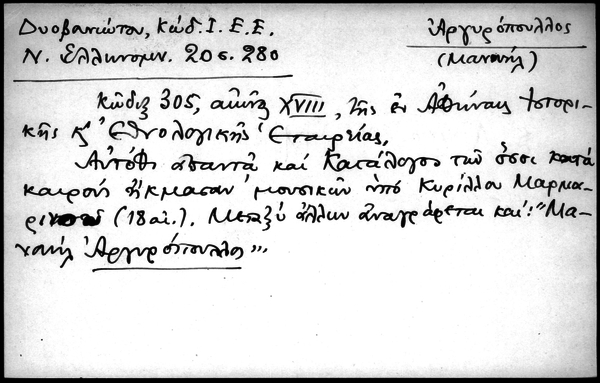 Δυοβουνιώτου, Κώδ. Ι. Ε. Ε.
Ν. Ελληνομν. 20 σ. 280
Ἀργυρόπουλλος
(Μανουήλ)
Κῶδιξ 305, αἰῶνος XVIII, τῆς ἐν Ἀθήναις Ἱστορι-
κῆς κ' Ἐθνολογικῆς Ἑταιρείας.
Αὐτόθι ἀπαντᾷ καὶ Κατάλογος τῶν ὅσοι κατὰ
καιροὺς ἤκμασαν μουσικῶν ὑπὸ Κυρίλλου Μαρμα-
ρινοῦ (18 αἰ.). Μεταξὺ ἄλλων ἀναγράφεται καί: "Μα-
νουήλ Ἀργυρόπουλλος"